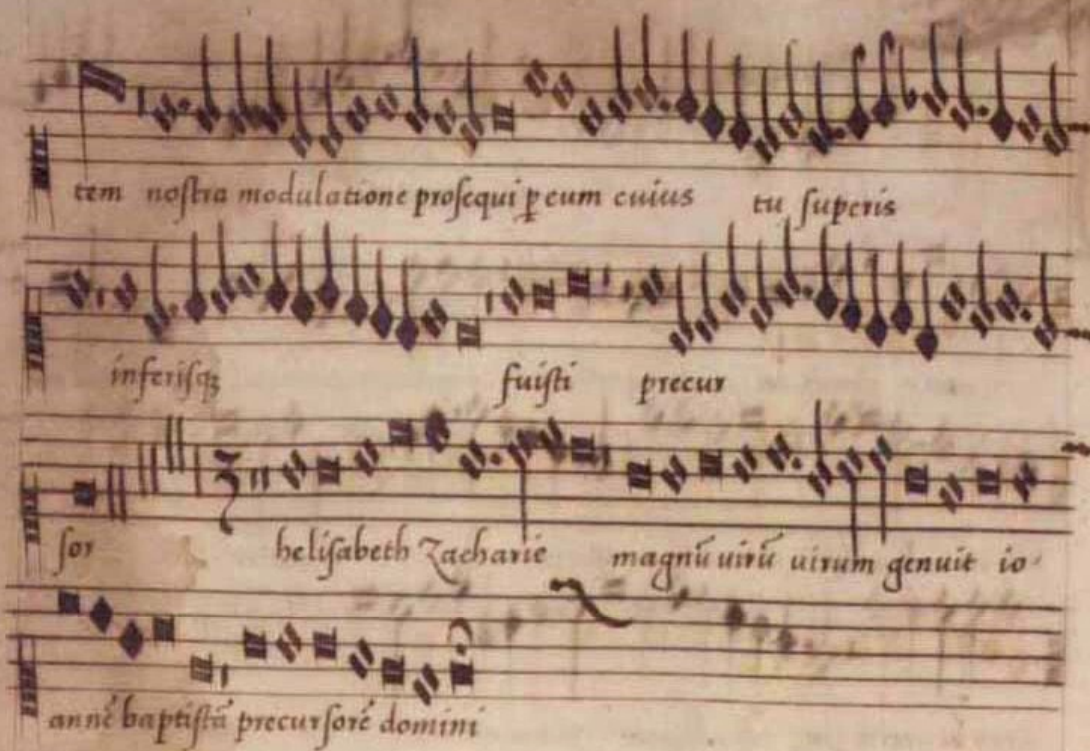 tem nostra modulatione prosequi ꝑ eum cuius tu superis
inferisqꝫ fuisti precur
sor helisabeth Zacharie magnũ uirũ uirum genuit io-
annẽ baptistã precursorẽ domini